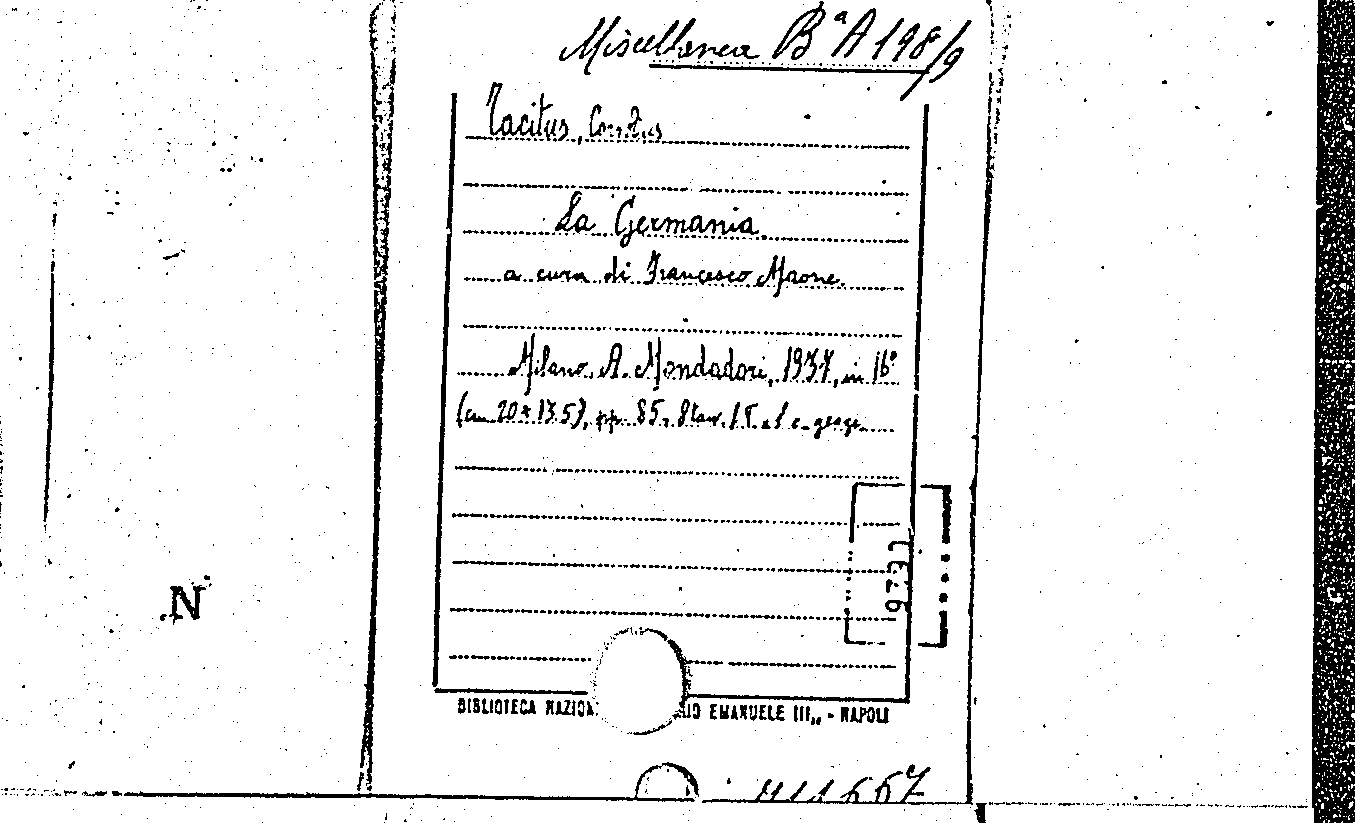 Miscellanea Bª A 198/9
Tacitus, Cornelius
La Germania.
a cura di Francesco Maone.
Milano, A. Mondadori, 1937, in 16°
(cm 20 x 13.5), pp. 85, 8 tav.
9731
N
BIBLIOTECA NAZION IO EMANUELE III,, - NAPOLI